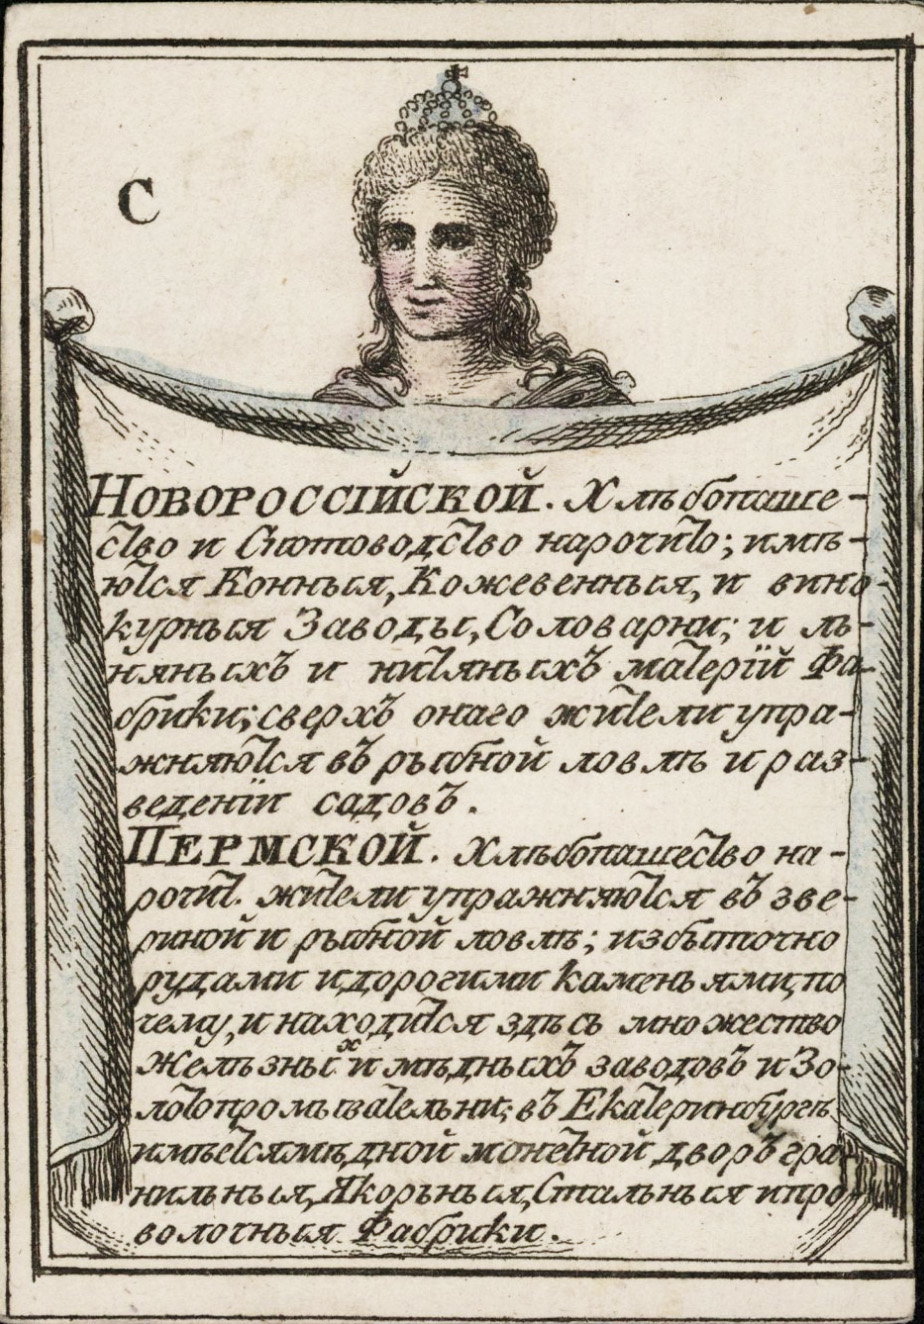 С
НОВОРОССІЙСКОЙ. Хлѣбопаше-
ство и Скотоводство нарочито; имѣ-
ются Конныя, Кожевенныя, и вино-
курныя Заводы, Соловарни; и ль-
няныхъ и нитяныхъ матерїй Фа-
брики; сверхъ онаго жители упра-
жняются въ рыбной ловлѣ и раз-
веденїи садовъ.
ПЕРМСКОЙ. Хлѣбопашество на-
рочит. жители упражняются въ зве-
риной и рыбной ловлѣ; избыточно
рудами и дорогими каменьями, по
чему, и находится здѣсь множество
Желѣзных и мѣдныхъ заводовъ и Зо-
лотопромывательни; въ Екатеринбургѣ
имѣется мѣдной монетной дворъ гра-
нильныя, Якорныя, Стальныя и про-
волочныя Фабрики.